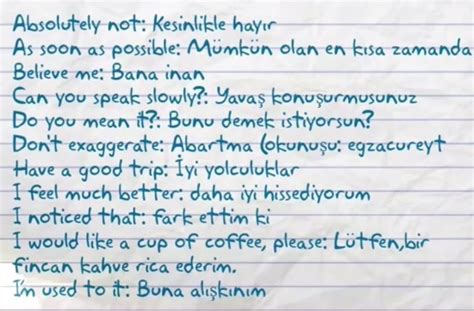 Absolutely not: Kesinlikle hayır
As soon as possible: Mümkün olan en kısa zamanda
Believe me: Bana inan
Can you speak slowly?: Yavaş konuşurmusunuz
Do you mean it?: Bunu demek istiyorsun?
Don't exaggerate: Abartma (okunuşu: egzacureyt
Have a good trip: İyi yolculuklar
I feel much better: daha iyi hissediyorum
I noticed that: fark ettim ki
I would like a cup of coffee, please: Lütfen,bir
fincan kahve rica ederim.
I'm used to it: Buna alışkınım